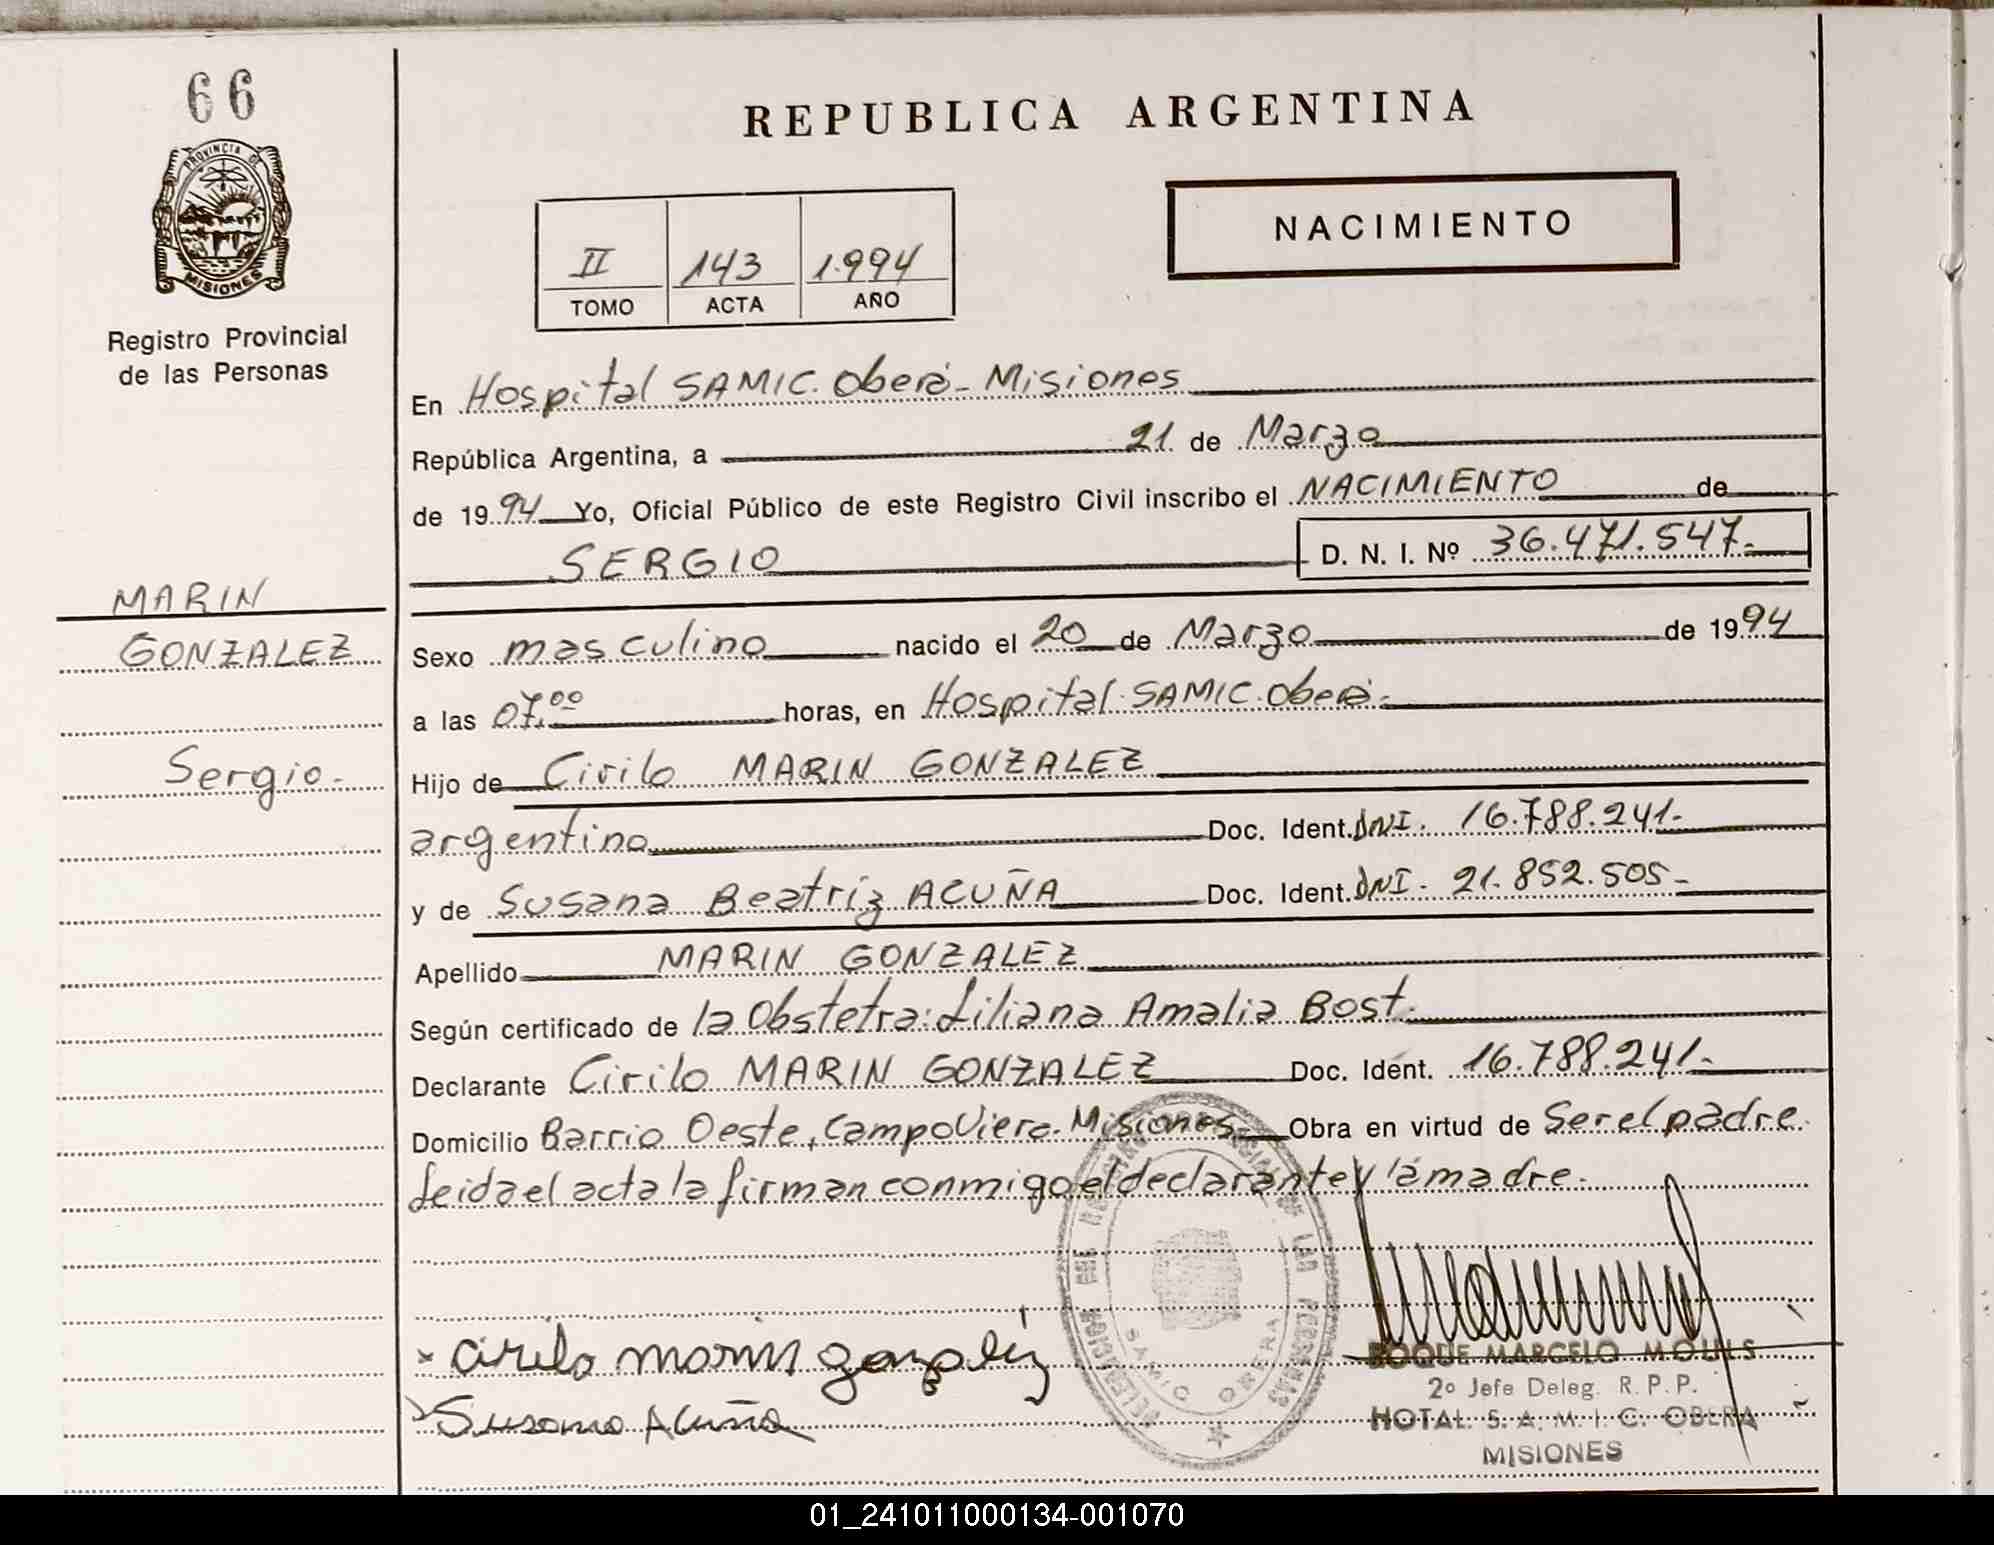 66
PROVINCIA DE
MISIONES
Registro Provincial
de las Personas
MARIN
GONZALEZ
Sergio.-
REPUBLICA ARGENTINA
NACIMIENTO
II 143 1.994
TOMO ACTA AÑO
En Hospital SAMIC. Oberá- Misiones
República Argentina, a 21 de Marzo
de 1994 Yo, Oficial Público de este Registro Civil inscribo el NACIMIENTO de
SERGIO D. N. I. Nº 36.471.547.-
Sexo masculino nacido el 20 de Marzo de 1994
a las 07.00 horas, en Hospital SAMIC. Oberá.-
Hijo de Cirilo MARIN GONZALEZ
argentino Doc. Ident. DNI. 16.788.241.-
y de Susana Beatriz ACUÑA Doc. Ident. DNI. 21.852.505.-
Apellido MARIN GONZALEZ
Según certificado de la Obstetra: Liliana Amalia Bost.
Declarante Cirilo MARIN GONZALEZ Doc. Ident. 16.788.241.-
Domicilio Barrio Oeste, Campo Viera. Misiones Obra en virtud de Ser el padre.
Leida el acta la firman conmigo el declarante y la madre.-
x Cirilo marin gonzalez
Susana Acuña
ROQUE MARCELO
2º Jefe Deleg. R. P. P.
HOTAL. S. A. M. I. C. OBERA
MISIONES
01_241011000134-001070